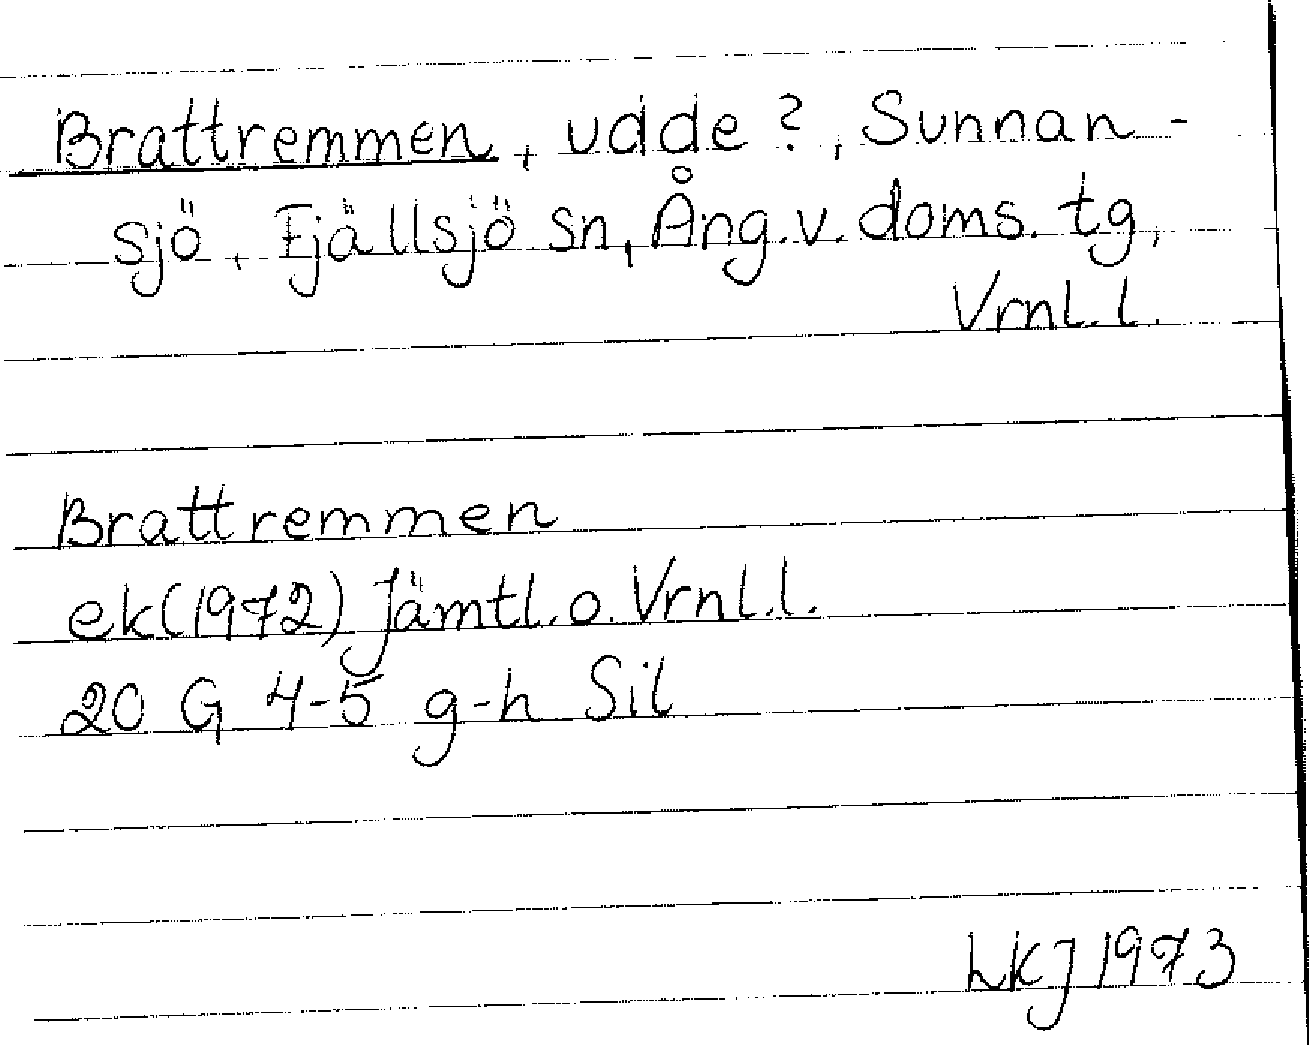 Brattremmen, udde?, Sunnan-
sjö, Fjällsjö sn, Ång.v.doms. tg,
Vrnl.l.
Brattremmen
ek(1972) Jämtl.o.Vrnl.l.
20 G 4-5 g-h Sil
LKJ 1973